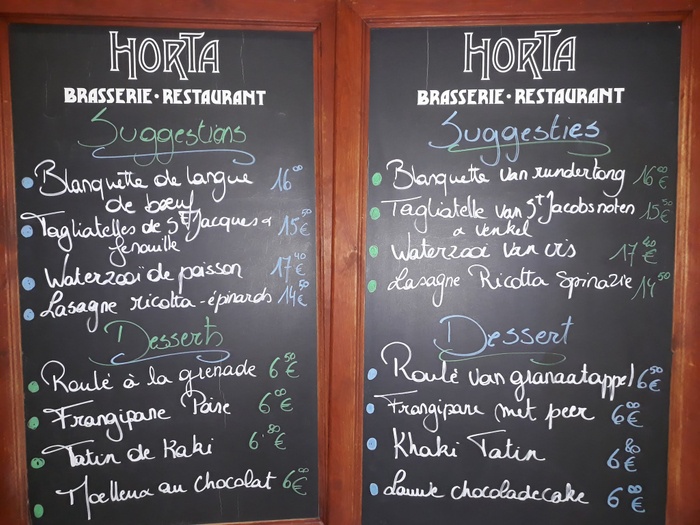 HORTA
BRASSERIE • RESTAURANT
Suggestions
Blanquette de langue 16⁰⁰
de bœuf
Tagliatelles de St Jacques & 15⁵⁰
fenouille
Waterzooï de poisson 17⁴⁰
Lasagne ricotta - épinards 14⁵⁰
Desserts
Roulé à la grenade 6⁵⁰€
Frangipane Poire 6⁰⁰€
Tatin de Kaki 6⁸⁰€
Moelleux au chocolat 6⁰⁰€
HORTA
BRASSERIE • RESTAURANT
Suggesties
Blanquette van rundertong 16⁰⁰€
Tagliatelle van St Jacobsnoten 15⁵⁰€
& venkel
Waterzooi van vis 17⁴⁰€
Lasagne Ricotta Spinazie 14⁵⁰
Dessert
Roulé van granaatappel 6⁵⁰€
Frangipane met peer 6⁰⁰€
Khaki Tatin 6⁸⁰€
Lauwe chocoladecake 6⁰⁰€